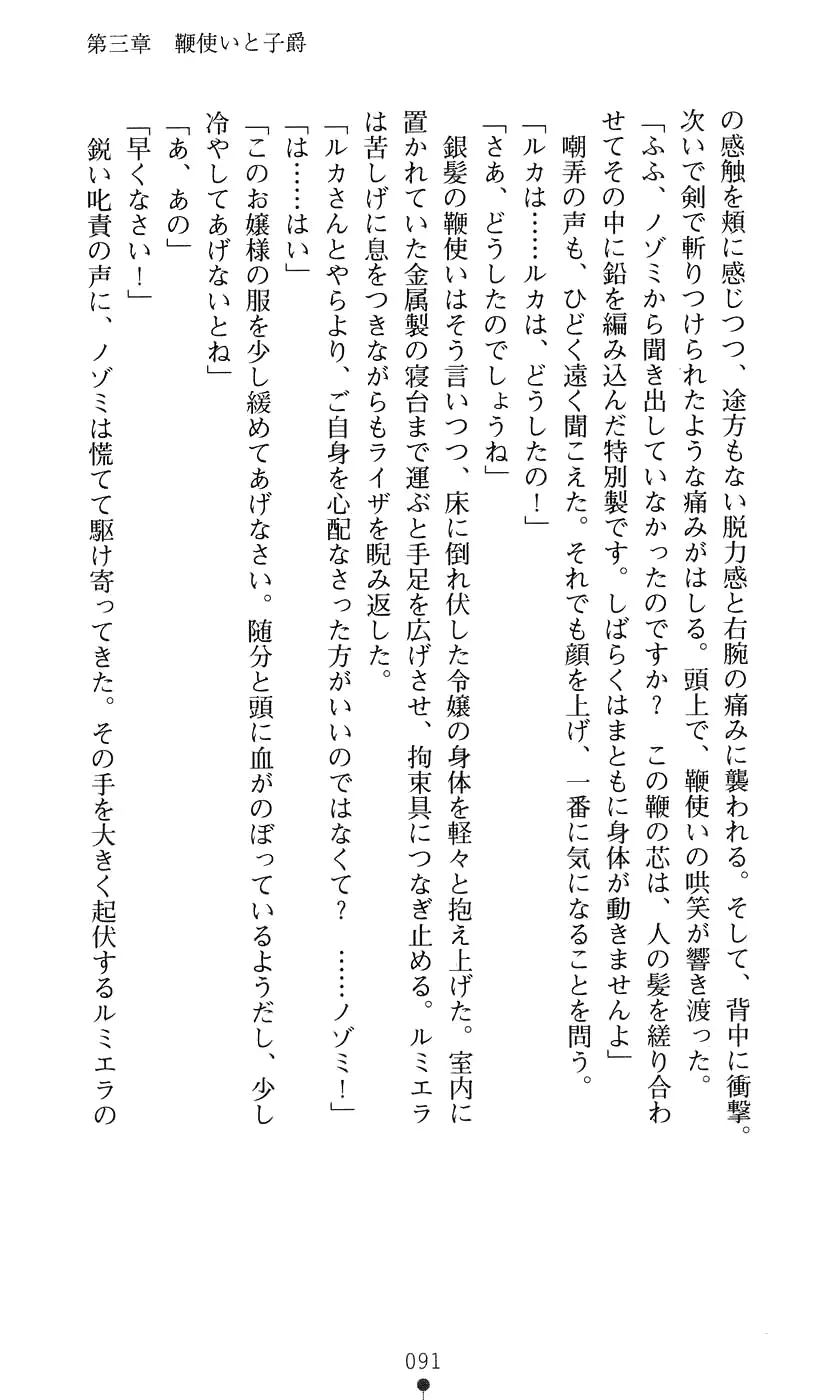 第三章　鞭使いと子爵
の感触を頬に感じつつ、途方もない脱力感と右腕の痛みに襲われる。そして、背中に衝撃。
次いで剣で斬りつけられたような痛みがはしる。頭上で、鞭使いの哄笑が響き渡った。
「ふふ、ノゾミから聞き出していなかったのですか？　この鞭の芯は、人の髪を縒り合わ
せてその中に鉛を編み込んだ特別製です。しばらくはまともに身体が動きませんよ」
　嘲弄の声も、ひどく遠く聞こえた。それでも顔を上げ、一番に気になることを問う。
「ルカは……ルカは、どうしたの！」
「さあ、どうしたのでしょうね」
　銀髪の鞭使いはそう言いつつ、床に倒れ伏した令嬢の身体を軽々と抱え上げた。室内に
置かれていた金属製の寝台まで運ぶと手足を広げさせ、拘束具につなぎ止める。ルミエラ
は苦しげに息をつきながらもライザを睨み返した。
「ルカさんとやらより、ご自身を心配なさった方がいいのではなくて？　……ノゾミ！」
「は……はい」
「このお嬢様の服を少し緩めてあげなさい。随分と頭に血がのぼっているようだし、少し
冷やしてあげないとね」
「あ、あの」
「早くなさい！」
　鋭い叱責の声に、ノゾミは慌てて駆け寄ってきた。その手を大きく起伏するルミエラの
091